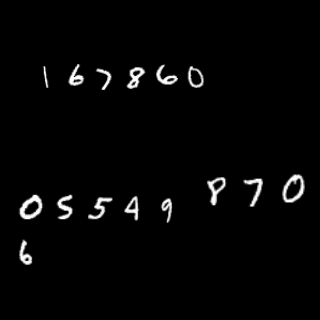 167860
05549870
6